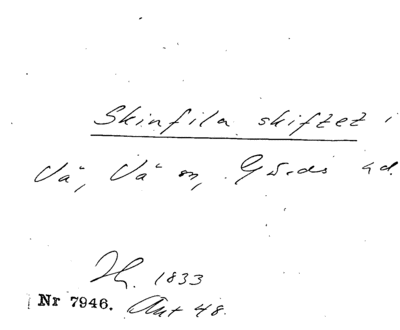 Skinfila skiftet i
Vä, Vä sn, Gärds hd.
Th. 1833
Nr 7946. Akt 48.